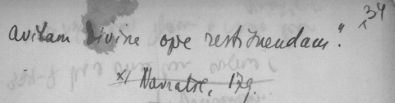 34
avitam divine ope restituendam".
x) Narratae, 179.